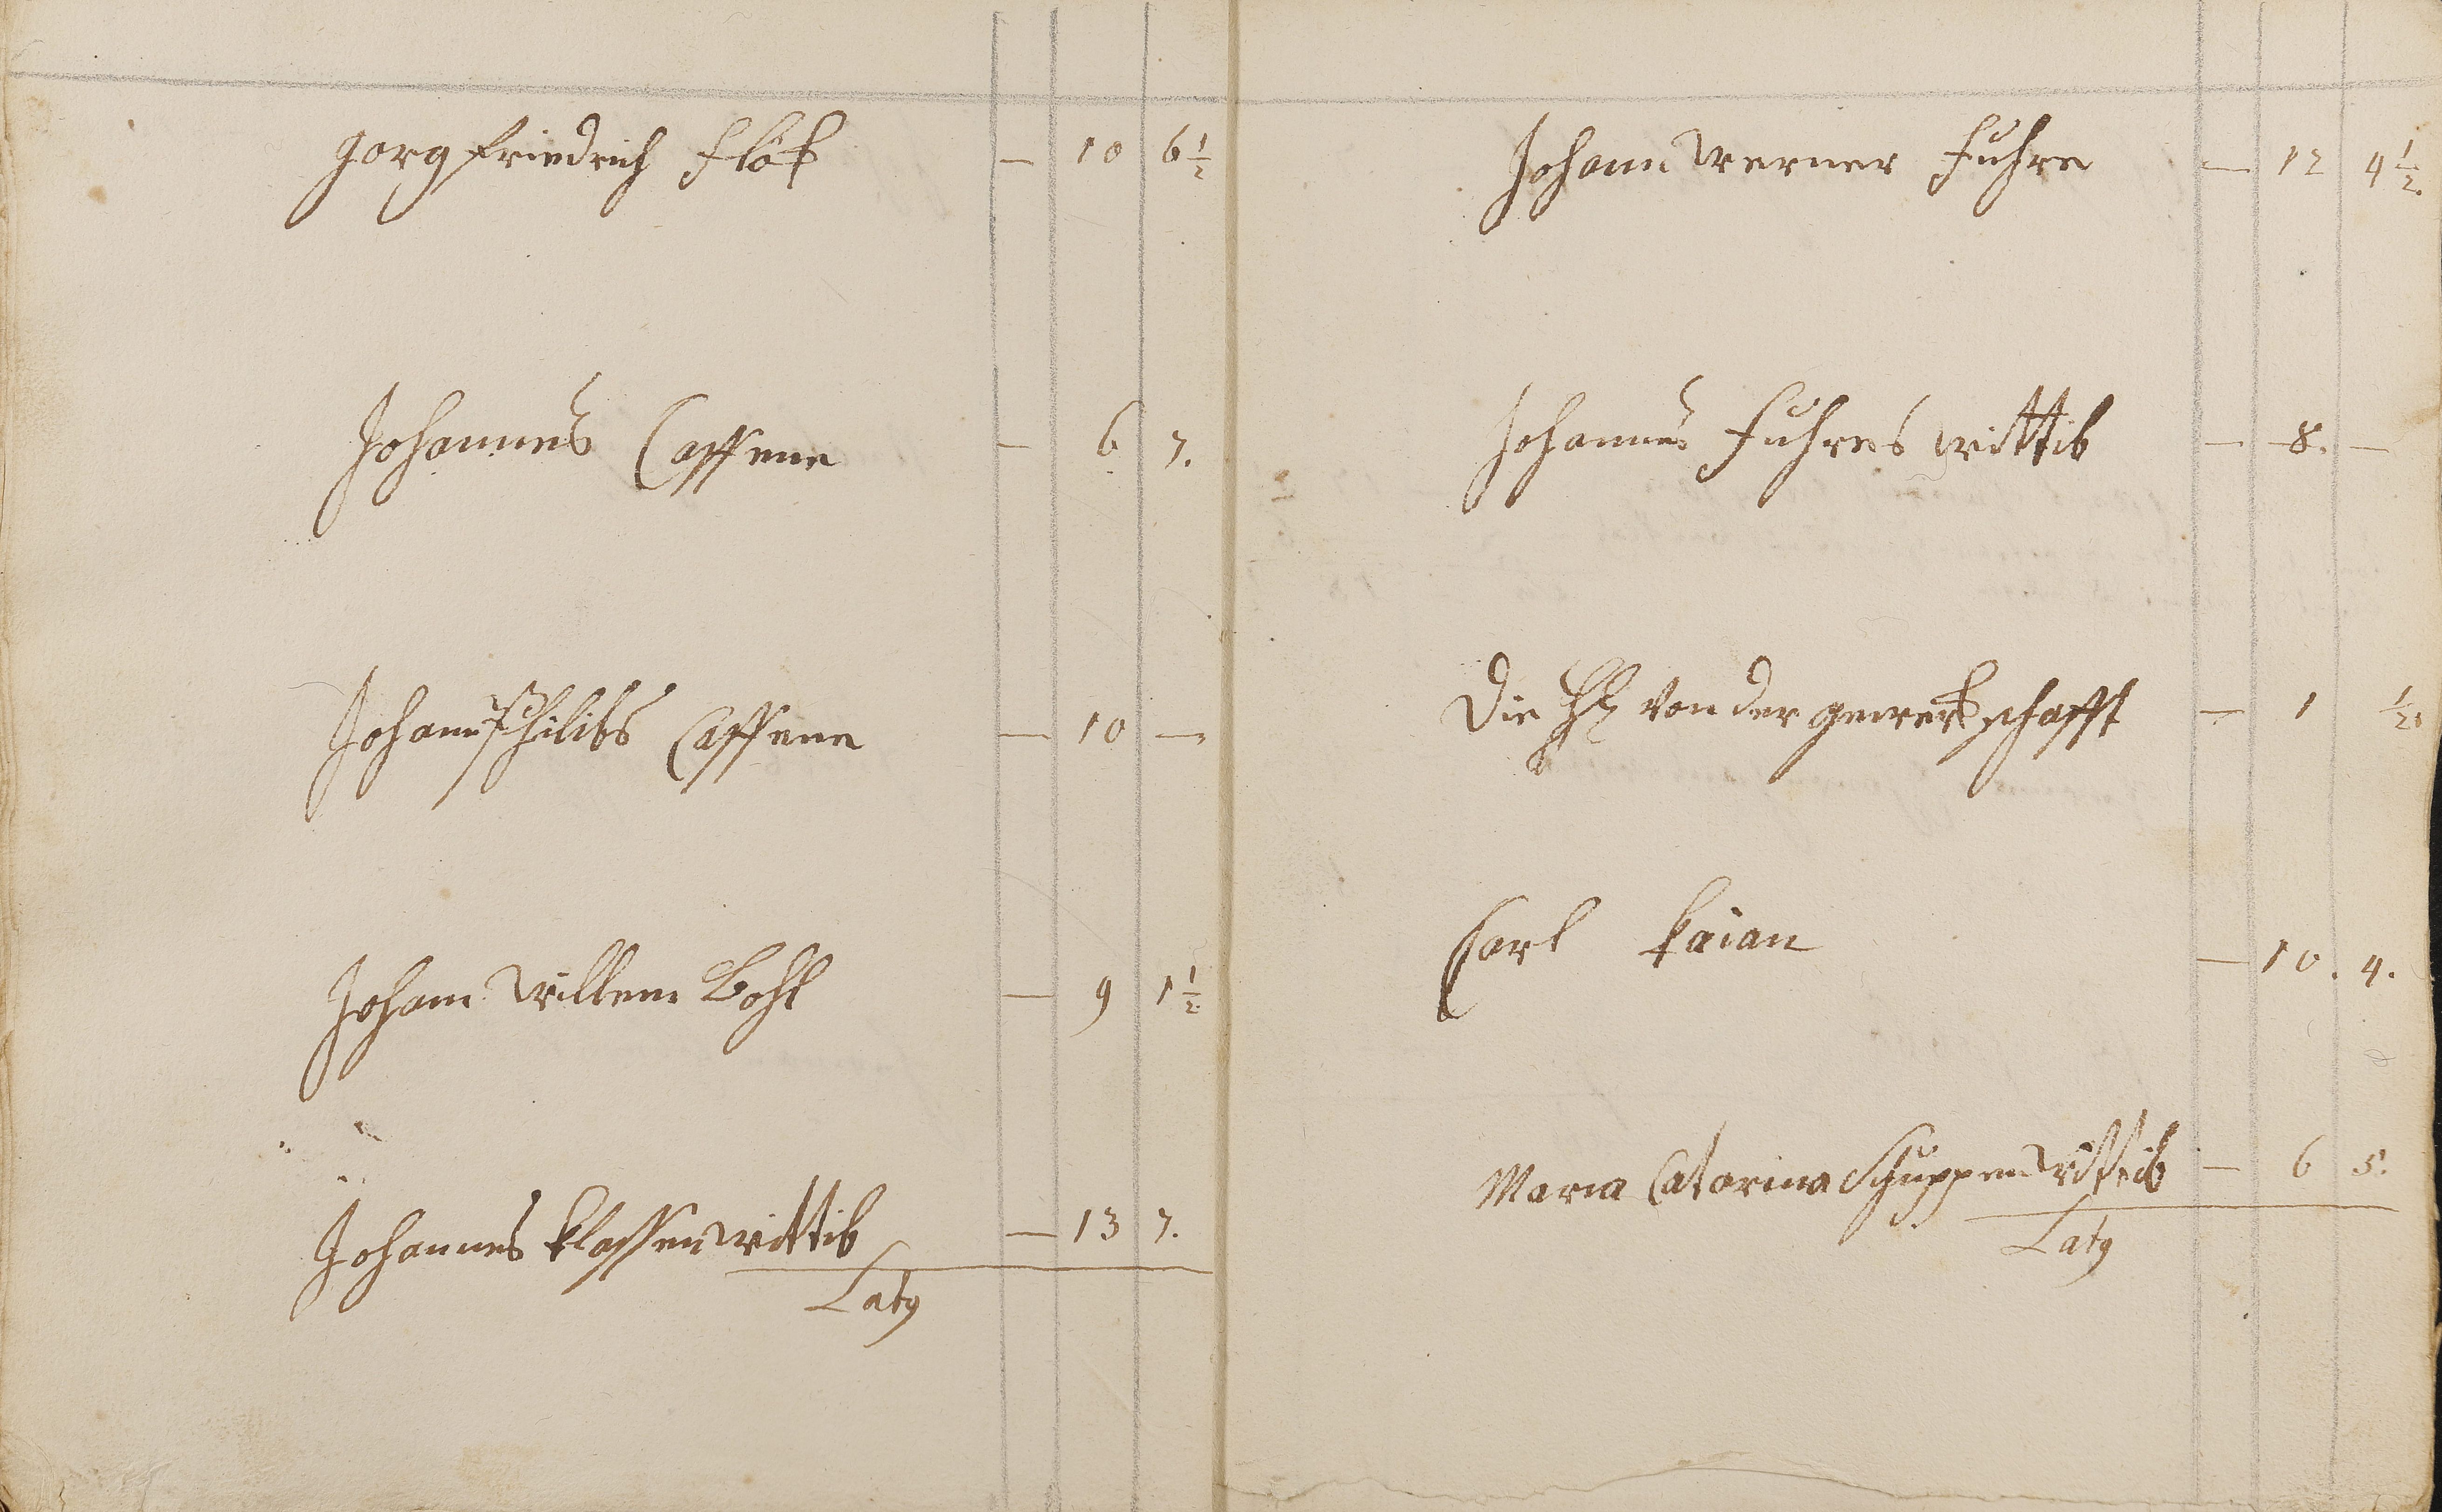 gorg friedrich Flök — 10 6 1/2
Johannes Cassene — 6 7.
Johann Philibs Cassene — 10 —
Johann willem Bohl — 9 1 1/2
Johannes Klassen wittib — 13 7.
Latg
Johann werner Fuhre — 12 4 1/2.
Johannes Fuhres wittib — 8. —
Die Hh von der gewerkschafft — 1 1/2.
Carl Kaian — 10. 4.
Maria Catarina Schuppen wittib — 6 5.
Latg